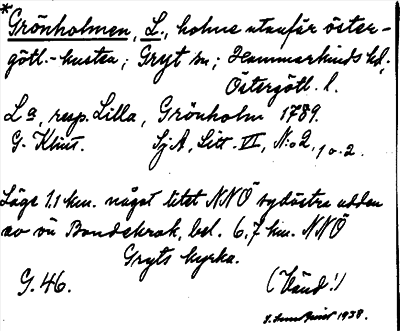 *Grönholmen, L., holme utanför öster-
götl.-kusten; Gryt sn; Hammarkinds hd,
Östergötl. l.
La, resp. Lilla, Grönholm 1789.
G. Klint. SjA, Litt. VI, N:o 2, 1 o. 2.
Läge 1.1 km. något litet NNÖ sydöstra udden
av ön Bondekrok, bel. 6.7 km. NNÖ
Gryts kyrka.
G. 46. (Vänd!)
1938.